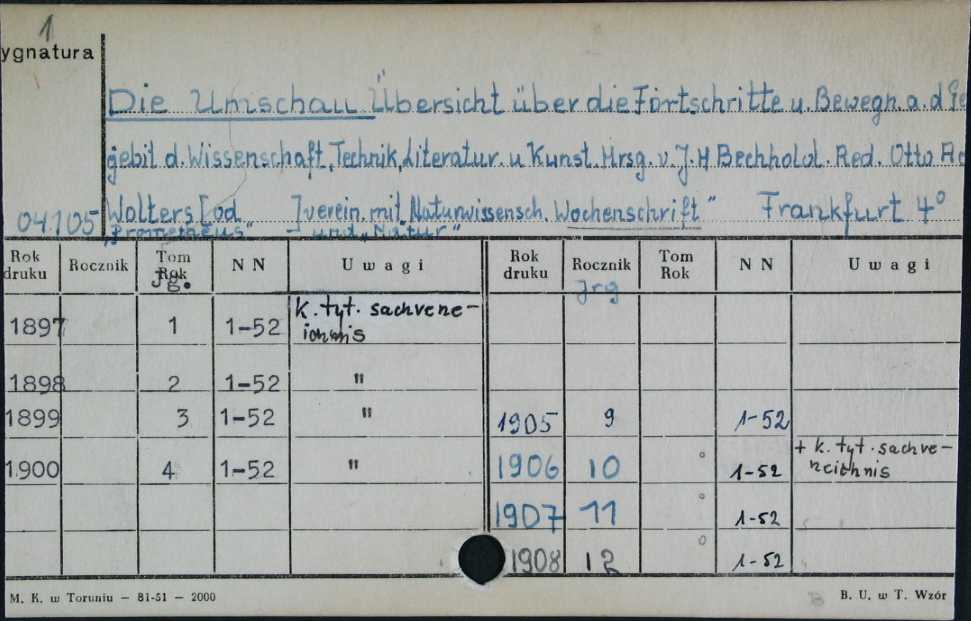 1
ygnatura
Die Umschau Übersicht über die Fortschritte u. Bewegn a. d Ge
gebit d. Wissenschaft, Technik, Literatur. u Kunst. Hrsg. v. J. H Bechhold. Red. Otto
04105 Wolters [od ] verein. mit „Naturwissensch. Wochenschrift" Frankfurt 4°
„Prometheus" und „Natur"
Rok druku Rocznik Tom Rok Jg. N N Uwagi Rok druku Rocznik Jrg Tom Rok N N Uwagi
1897 1 1-52 k. tyt. sachvene-
ichnis
1898 2 1-52 "
1899 3 1-52 " 1905 9 1-52
1900 4 1-52 " 1906 10 ° 1-52 + k. tyt. sachve-
neichnis
1907 11 ° 1-52
1908 12 ° 1-52
M. K. w Toruniu — 81-51 — 2000 B. U. w T. Wzór